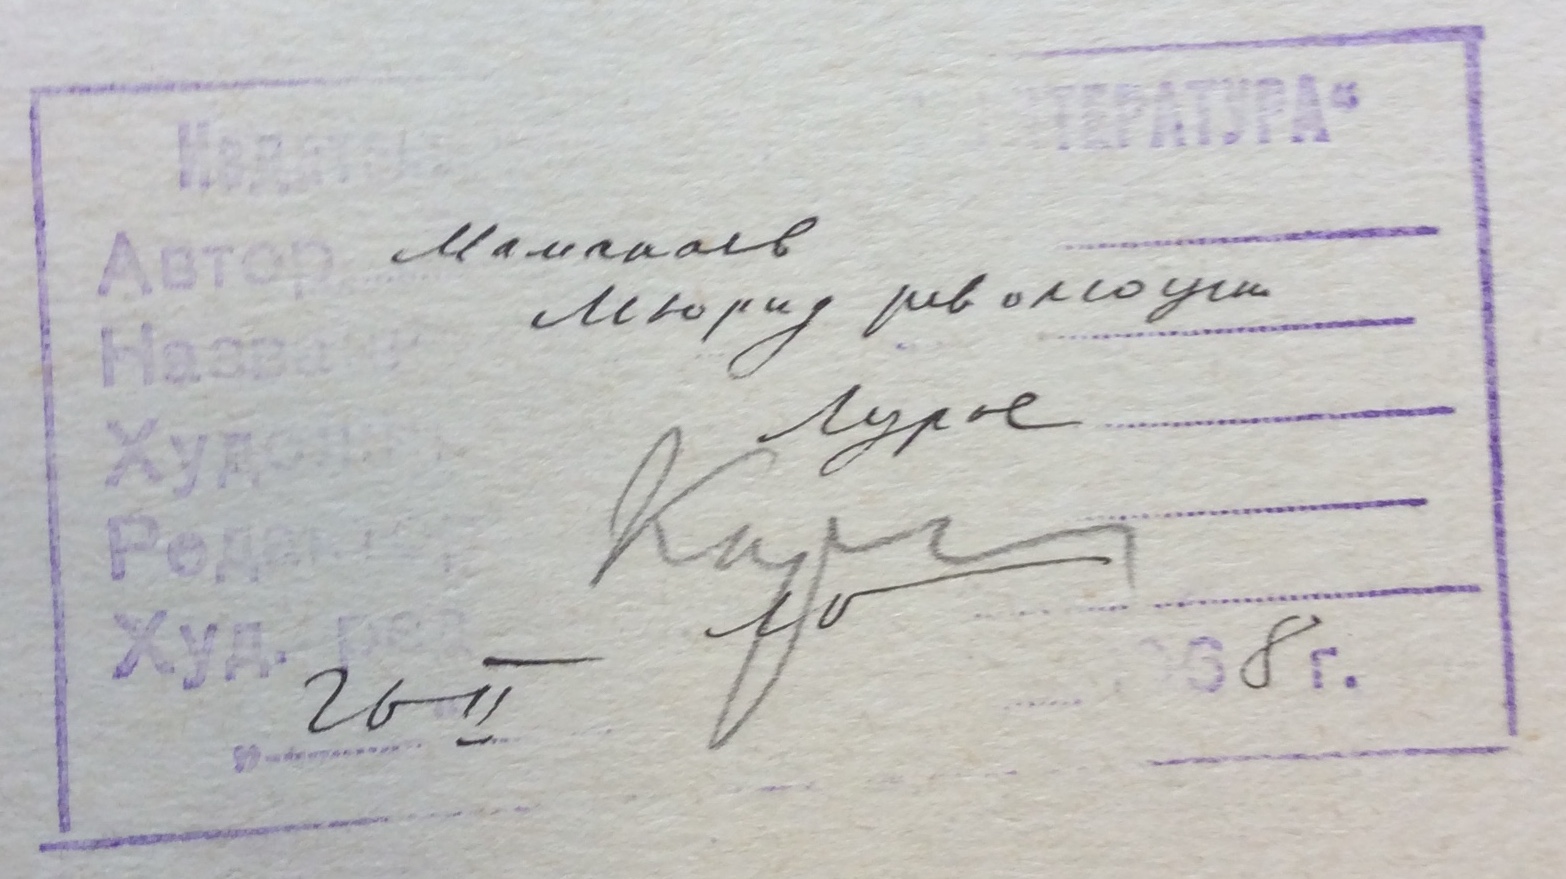 Издател ИТЕРАТУРА“
Автор Мамакаев
Назван Мюрид революции
Художник Лурье
Редактор
Худ. ред.
26 II 1968 г.